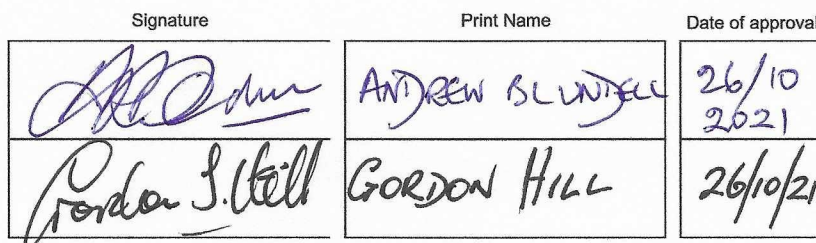 Signature Print Name Date of approval
ANDREW BLUNDELL 26/10
2021
Gordon J. Hill GORDON HILL 26/10/21